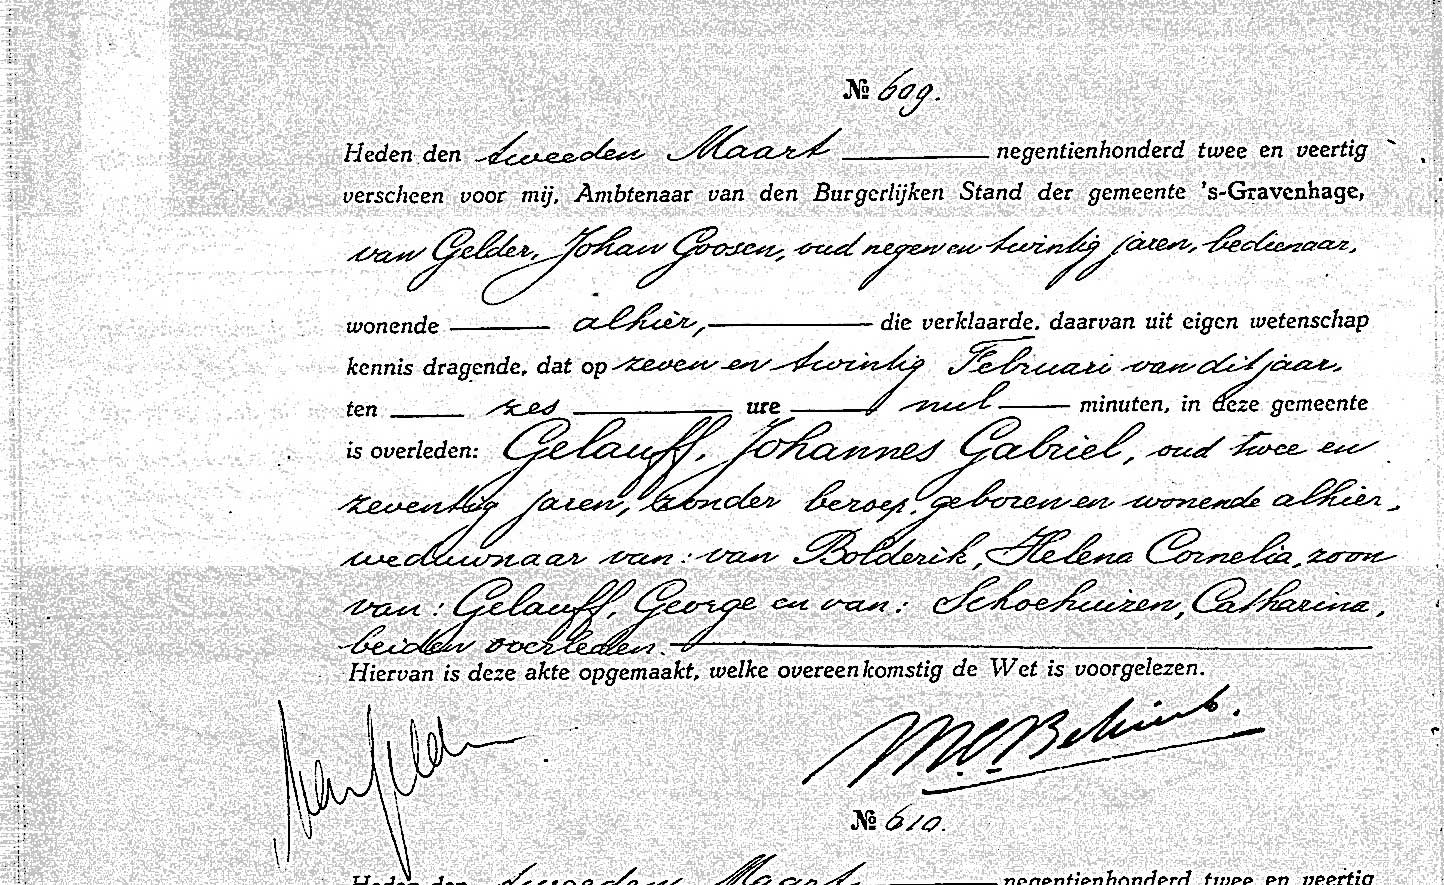 № 609.
Heden den tweeden Maart negentienhonderd twee en veertig
verscheen voor mij, Ambtenaar van den Burgerlijken Stand der gemeente 's-Gravenhage,
van Gelder, Johan Goosen, oud negen en twintig jaren, bedienaar,
wonende alhier, die verklaarde, daarvan uit eigen wetenschap
kennis dragende, dat op zeven en twintig Februari van dit jaar,
ten zes ure nul minuten, in deze gemeente
is overleden: Gelauff, Johannes Gabriel, oud twee en
zeventig jaren, zonder beroep, geboren en wonende alhier,
weduwnaar van: van Bolderik, Helena Cornelia, zoon
van: Gelauff, George en van: Schoehuizen, Catharina,
beiden overleden.
Hiervan is deze akte opgemaakt, welke overeenkomstig de Wet is voorgelezen.
№ 610.
Heden den tweeden Maart negentienhonderd twee en veertig